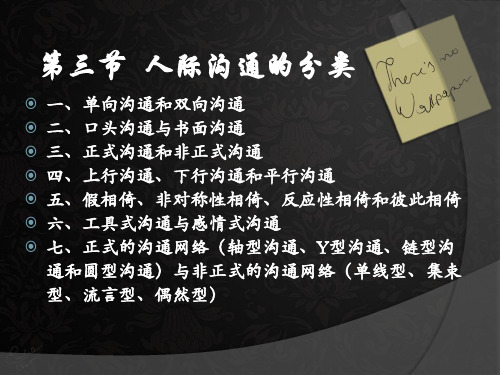 第三节 人际沟通的分类
There's no
Wallpaper
一、单向沟通和双向沟通
二、口头沟通与书面沟通
三、正式沟通和非正式沟通
四、上行沟通、下行沟通和平行沟通
五、假相倚、非对称性相倚、反应性相倚和彼此相倚
六、工具式沟通与感情式沟通
七、正式的沟通网络（轴型沟通、Y型沟通、链型沟
通和圆型沟通）与非正式的沟通网络（单线型、集束
型、流言型、偶然型）